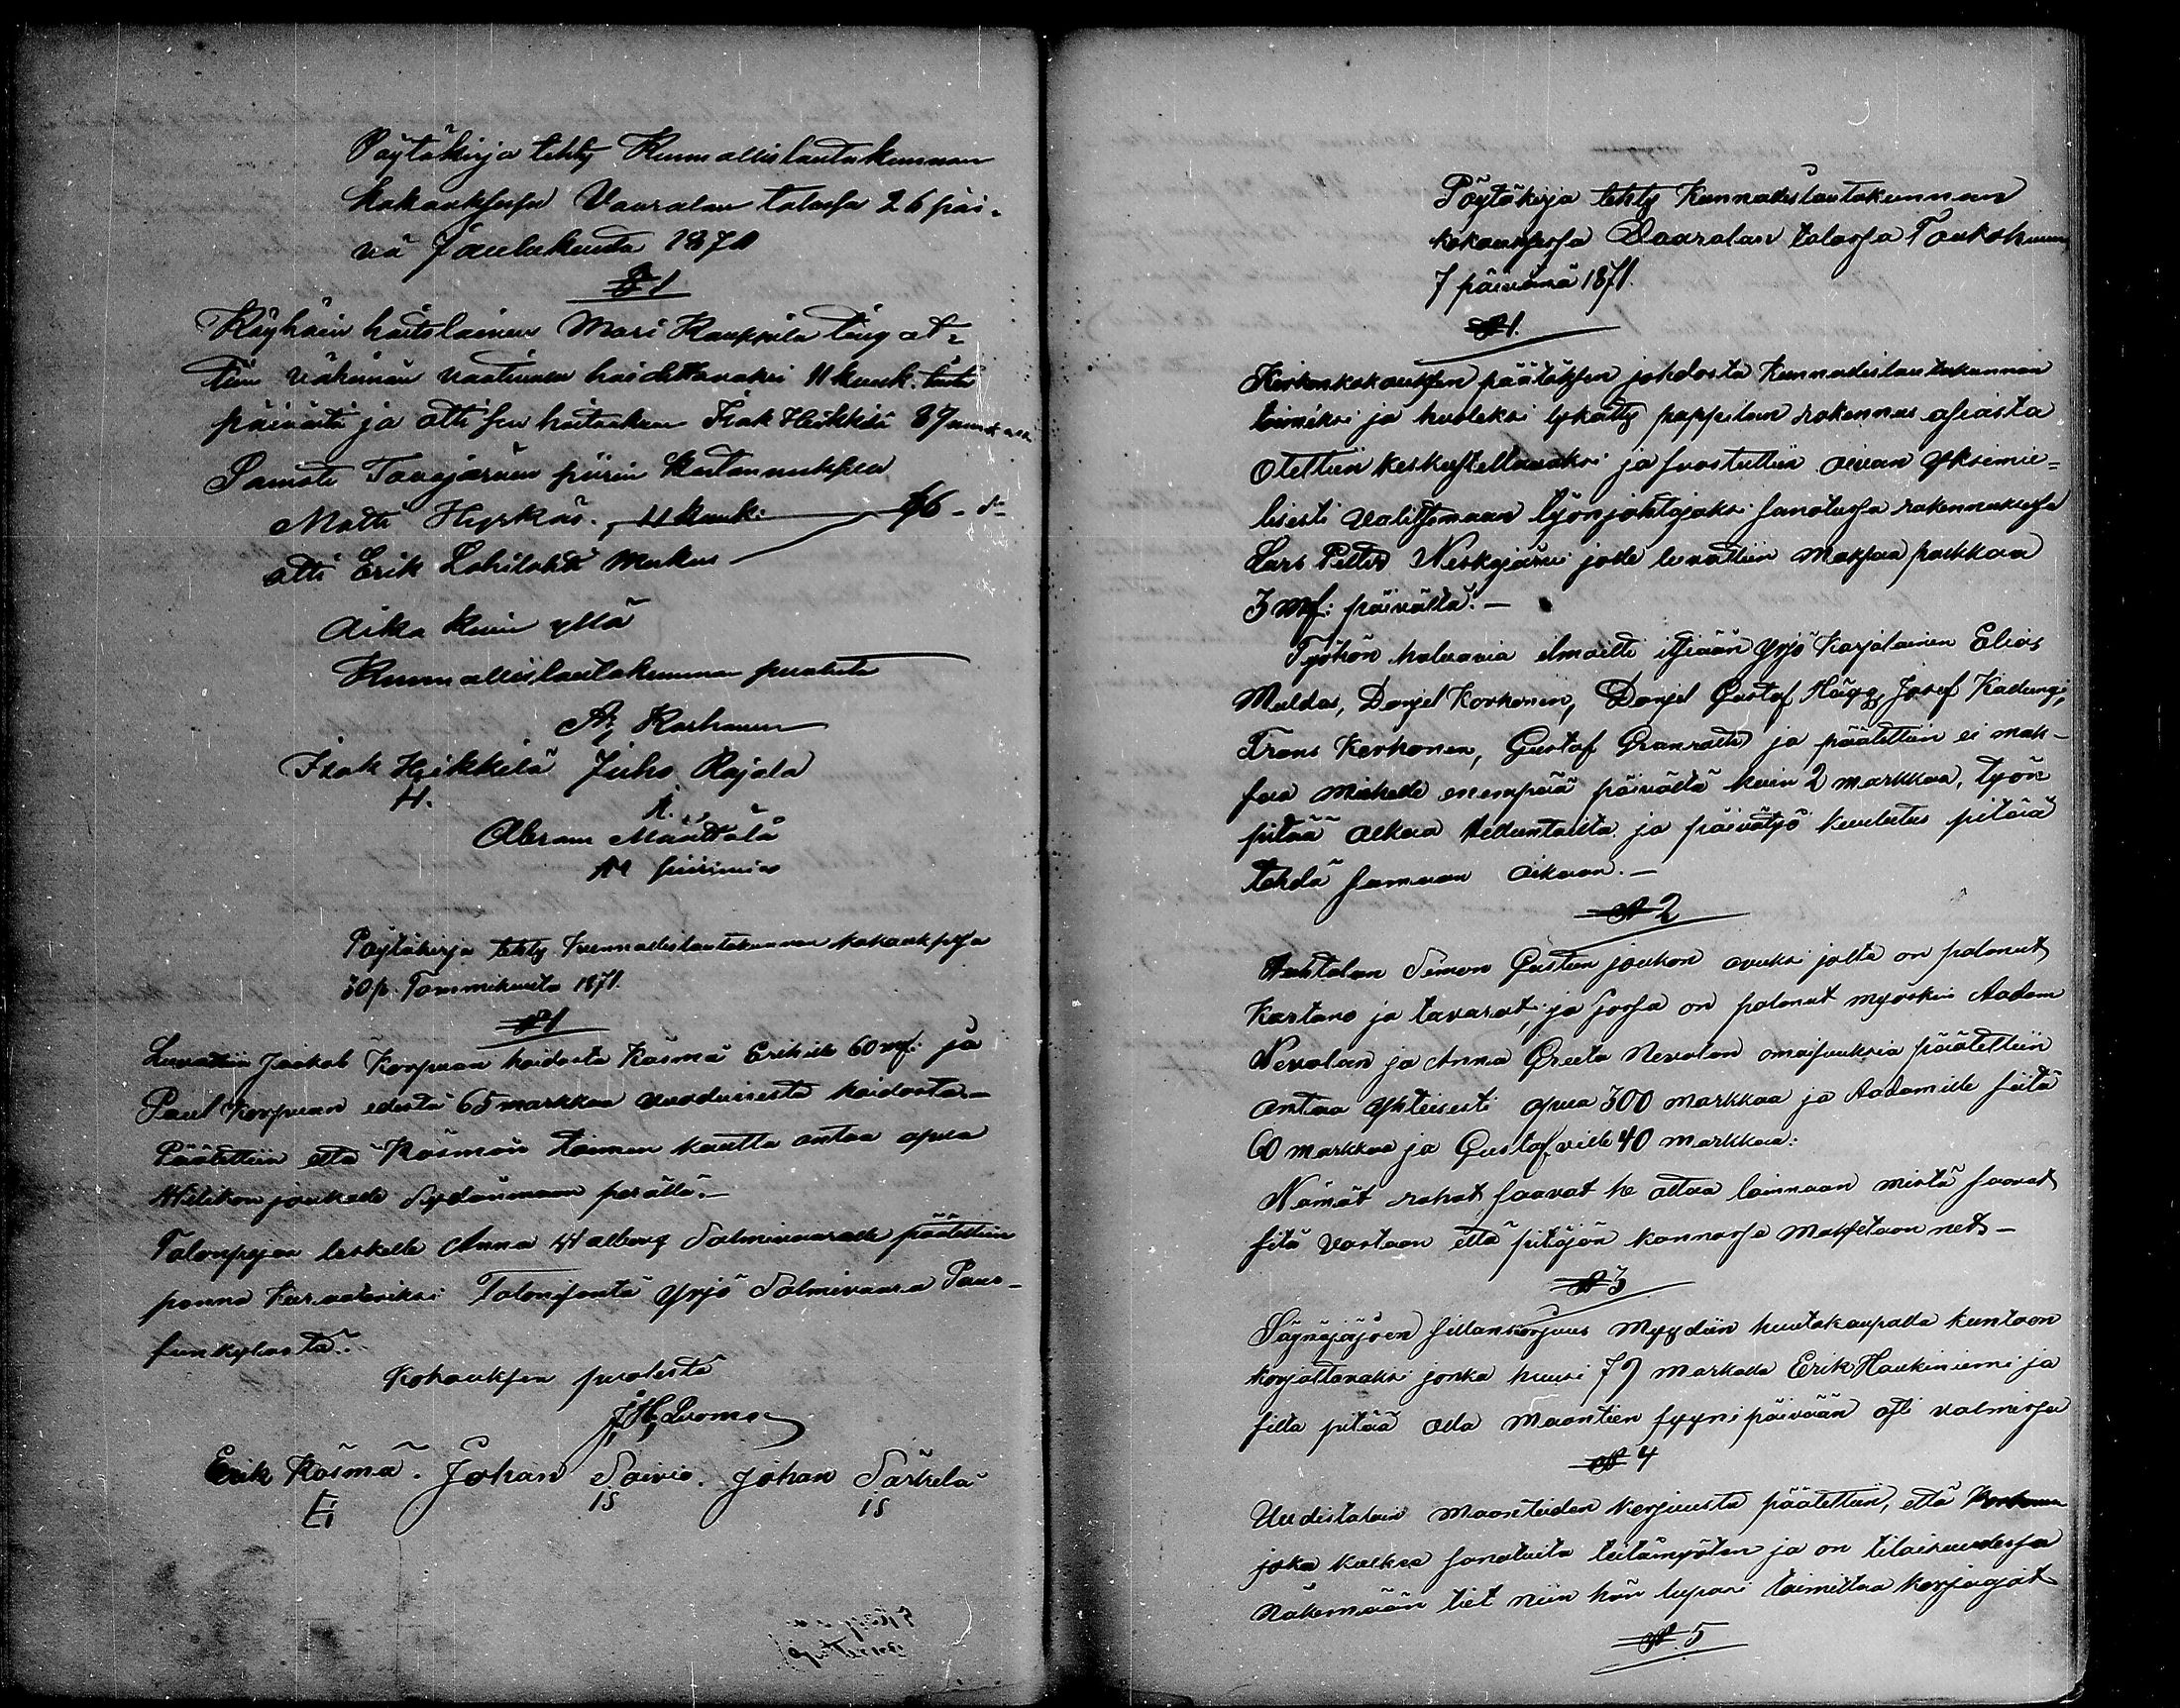 Pöytäkirja tehty Kunnallislautakunnan
kokouksessa Vaaralan talossa 26 päi-
vä Joulukuuta 1870
§ 1
Köyhäin hoitolainen Mari Kauppila
tiin vähimän vaativan hoidettavaksi 11 kuuk. tästä
päivästä ja otti sen hoitaakseen Isak Heikkilä 87
Samate Tavajärven piirin kustannuksella
Matti Hyrkäs. 11 kuuk. 56 - S-
otti Erik Lohilahti
Aika kuin yllä
Kunnallislautakunnan puolesta
A. Karhunen
Isak Heikkilä Juho Rajala
H. R.
Abram Määttälä
AM piirimies
Pöytäkirja tehty Kunnallislautakunnan kokouksessa
30 p. Tammikuuta 1871.
§ 1
Luvattiin Jaakob Korpuan hoidosta Käsmä Erikille 60 mk: ja
Paul Korpuan edestä 65 markkaa vuoduisesta hoidosta.-
Päätettiin että Käsmän toimen kautta antaa apua
joukolle Sydänmaan perällä.-
Talonpojan leskelle Anna Halberg Salmivaaralle päätettiin
panna kuraatoriksi Talonisäntä Yrjö Salmivaara Paus-
sunkylästä.
Kokouksen puolesta
J. H. Luoma
Erik Käsmä. Johan Saivio. Johan Särkelä
E. IS IS
Pöytäkirja tehty Kunnallislautakunnan
kokouksessa Vaaralan talossa Toukokuun
7 päivänä 1871.
§ 1.
Kirkonkokouksen päätöksen johdosta Kunnallislautakunnan
toimeksi ja huoleksi lykätty pappilan rakennus asiasta
otettiin keskusteltavaksi ja suostuttiin aivan yksimie-
lisesti valitsemaan työnjohtajaksi sanotussa rakennuksessa
Lars Petter Niskajärvi jolle luvattiin maksaa palkkaa
3 Mk: päivältä.-
Työhön haluavia ilmoitti itsiään Yrjö Karjalainen Elias
Muldas, Danjel Korhonen, Danjel Gustaf Hägg, Josef Kadung,
Frans Korhonen, Gustaf Granroth ja päätettiin ei mak-
saa mihelle enempää päivältä kuin 2 markkaa, työn
pitää alkaa Helluntailta ja päivätyö kuulutus pitää
tehdä samaan aikaan.-
§ 2
Ahtolan Simon Gustun joukon avuksi jolta on palanut
Kartano ja tavarat, ja jossa on palanut myöskin Aadam
Nevalan ja Anna Greeta Nevalan omaisuuksia päätettiin
antaa yhteisesti apua 300 markkaa ja Aadamille siitä
60 markkaa ja Gustaf ville 40 markkaa.
Nämät rahat saavat he ottaa lainaan mistä saavat
sitä vastaan että pitäjän kannossa maksetaan net-
§ 3
Säynäjäjoen sillankorjuus myydiin huutokaupalla kuntoon
korjattavaksi jonka huusi 79 markalla Erik Haukiniemi ja
silta pitää olla maantien syynipäivään asti valmiissa
§ 4
Uudistaloin maanteiden korjuusta päätettiin, että Korhonen
joka kulkee sanotuita teitämyöten ja on tilaisuudessa
näkemään tiet niin hän lupasi toimittaa korjaajat
§ 5